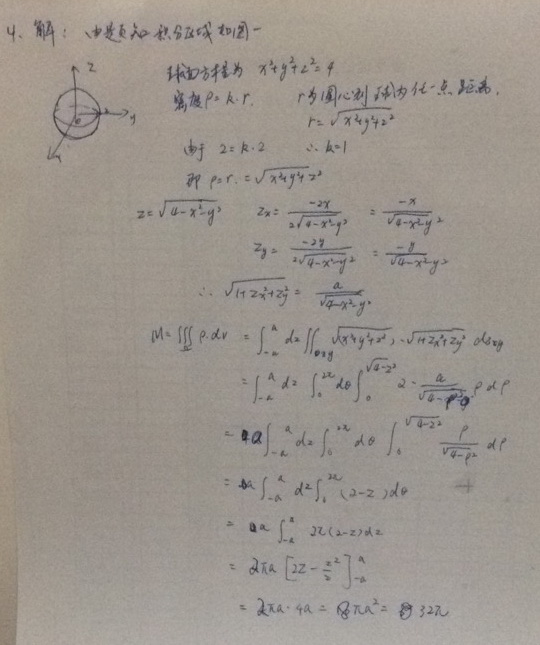 4. 解: 由题知积分区域如图一
z
y
x
球面方程为 x²+y²+z²=4
密度 ρ=k·r. r为圆心到球内任一点距离.
r=√(x²+y²+z²)
由于 2=k·2 ∴k=1
即 ρ=r=√(x²+y²+z²)
z=√(4-x²-y²) Zx= -2x / 2√(4-x²-y²) = -x / √(4-x²-y²)
Zy= -2y / 2√(4-x²-y²) = -y / √(4-x²-y²)
∴ √(1+Zx²+Zy²) = a / √(4-x²-y²)
M=∭ρ.dv = ∫_{-a}^{a} dz ∬ √(x²+y²+z²) · √(1+Zx²+Zy²) dxy
= ∫_{-a}^{a} dz ∫_0^{2π} dθ ∫_0^{√(4-z²)} 2 · a / √(4-ρ²) ρ dρ
= a ∫_{-a}^{a} dz ∫_0^{2π} dθ ∫_0^{√(4-z²)} ρ / √(4-ρ²) dρ
= a ∫_{-a}^{a} dz ∫_0^{2π} (2-z) dθ
= a ∫ 2π(2-z) dz
= 2πa [2z - z²/2]_{-a}^{a}
= 2πa·4a = 8πa² = 32π